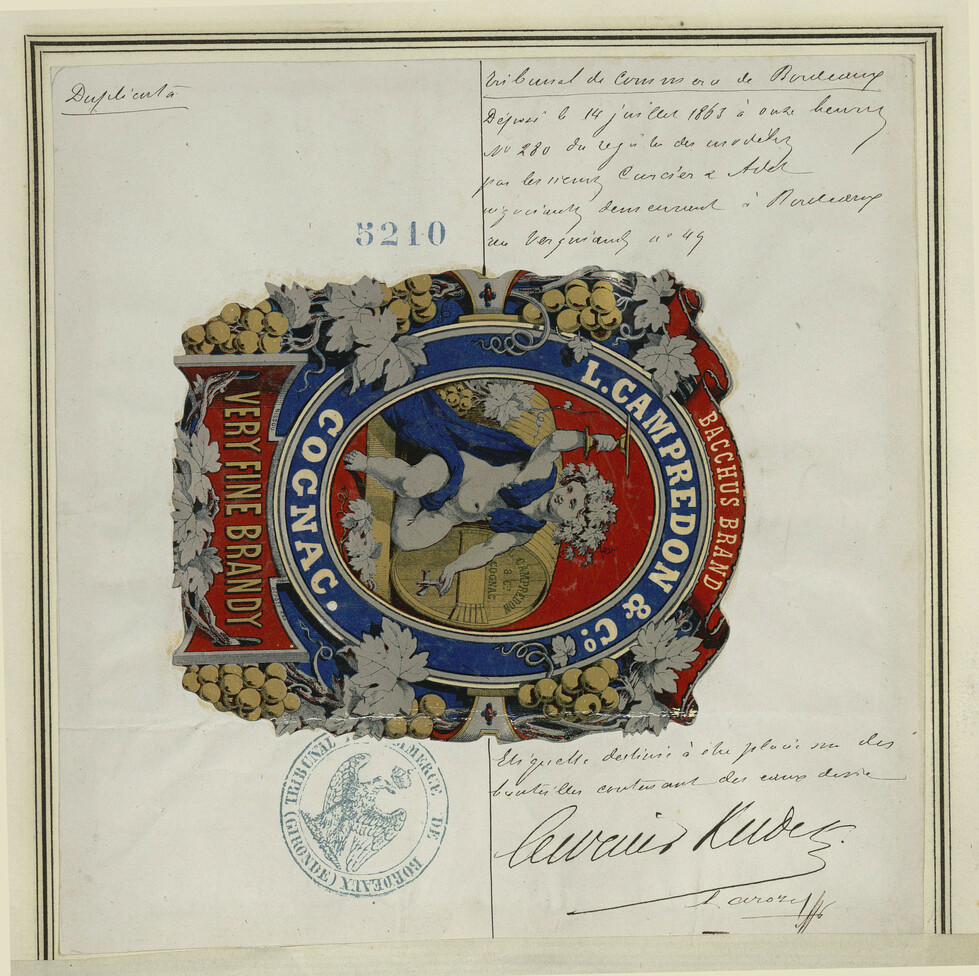 Duplicata
Tribunal de Commerce de Bordeaux
Déposé le 14 juillet 1863 à onze heures
No 280 du registre des modèles
par les sieurs Curcier & Adet
négociants demeurant à Bordeaux
rue no 49
5210
BACCHUS BRAND
L. CAMPREDON & Co
COGNAC.
CAMPREDON
& Co
COGNAC
VERY FINE BRANDY
Etiquette destinée à être placée sur des
bouteilles contenant des eaux de vie
TRIBUNAL DE COMMERCE DE BORDEAUX (GIRONDE)